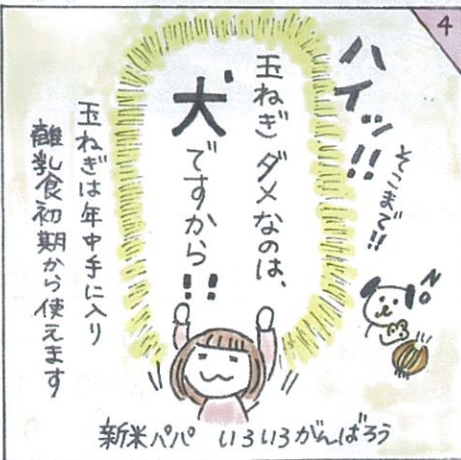 4
ハイッ!!
そこまで!!
玉ねぎダメなのは、
犬ですから!!
NO
玉ねぎは年中手に入り
離乳食初期から使えます
新米パパ いろいろがんばろう